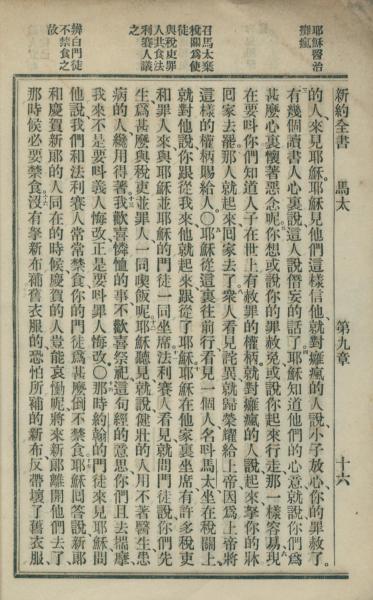 新約全書 馬太 第九章 十六
耶穌醫治
癱瘋
召馬太棄
稅關爲使
徒其食法
與稅吏罪
人共食法
利賽人議
之
辨白門徒
不禁食之
故
的人、來見耶穌、耶穌見他們這樣信他、就對癱瘋的人說、小子放心、你的罪赦了、
有幾個讀書人心裏說、這人說僭妄的話了、耶穌知道他們的心意、就說、你們爲
甚麼心裏懷著惡念呢、你想或說你的罪赦免、或說你起來行走、那一樣容易、現
在要呌你們知道人子在世上有赦罪的權柄、就對癱瘋的人說、起來、拏你的牀
回家去罷、那人就起來、回家去了、衆人看見詫異、就歸榮耀給上帝、因爲上帝將
這樣的權柄賜給人、○耶穌從這裏往前行、看見一個人、名呌馬太、坐在稅關上、
就對他說、你跟從我來、他就起來跟從了耶穌、耶穌在他家裏坐席、有許多稅吏
和罪人來、與耶穌並耶穌的門徒一同坐席、法利賽人看見、就問門徒說、你們先
生爲甚麼與稅吏並罪人一同喫飯呢、耶穌聽見就說、健壯的人用不著醫生、患
病的人纔用得著、我歡喜憐恤的事、不歡喜祭祀、這句經的意思、你們且去揣摩、
我來不是要呌義人悔改、正是要呌罪人悔改、○那時約翰的門徒來見耶穌、問
他說、我們和法利賽人常常禁食、你的門徒甚麼倒不禁食、耶穌回答說、新郞
和慶賀新郞的人同在的時候、慶賀的人豈能哀慟呢、將來新郞離開他們去了、
那時候必要禁食、沒有拏新布補舊衣服的、恐怕所補的新布、反帶壞了舊衣服、